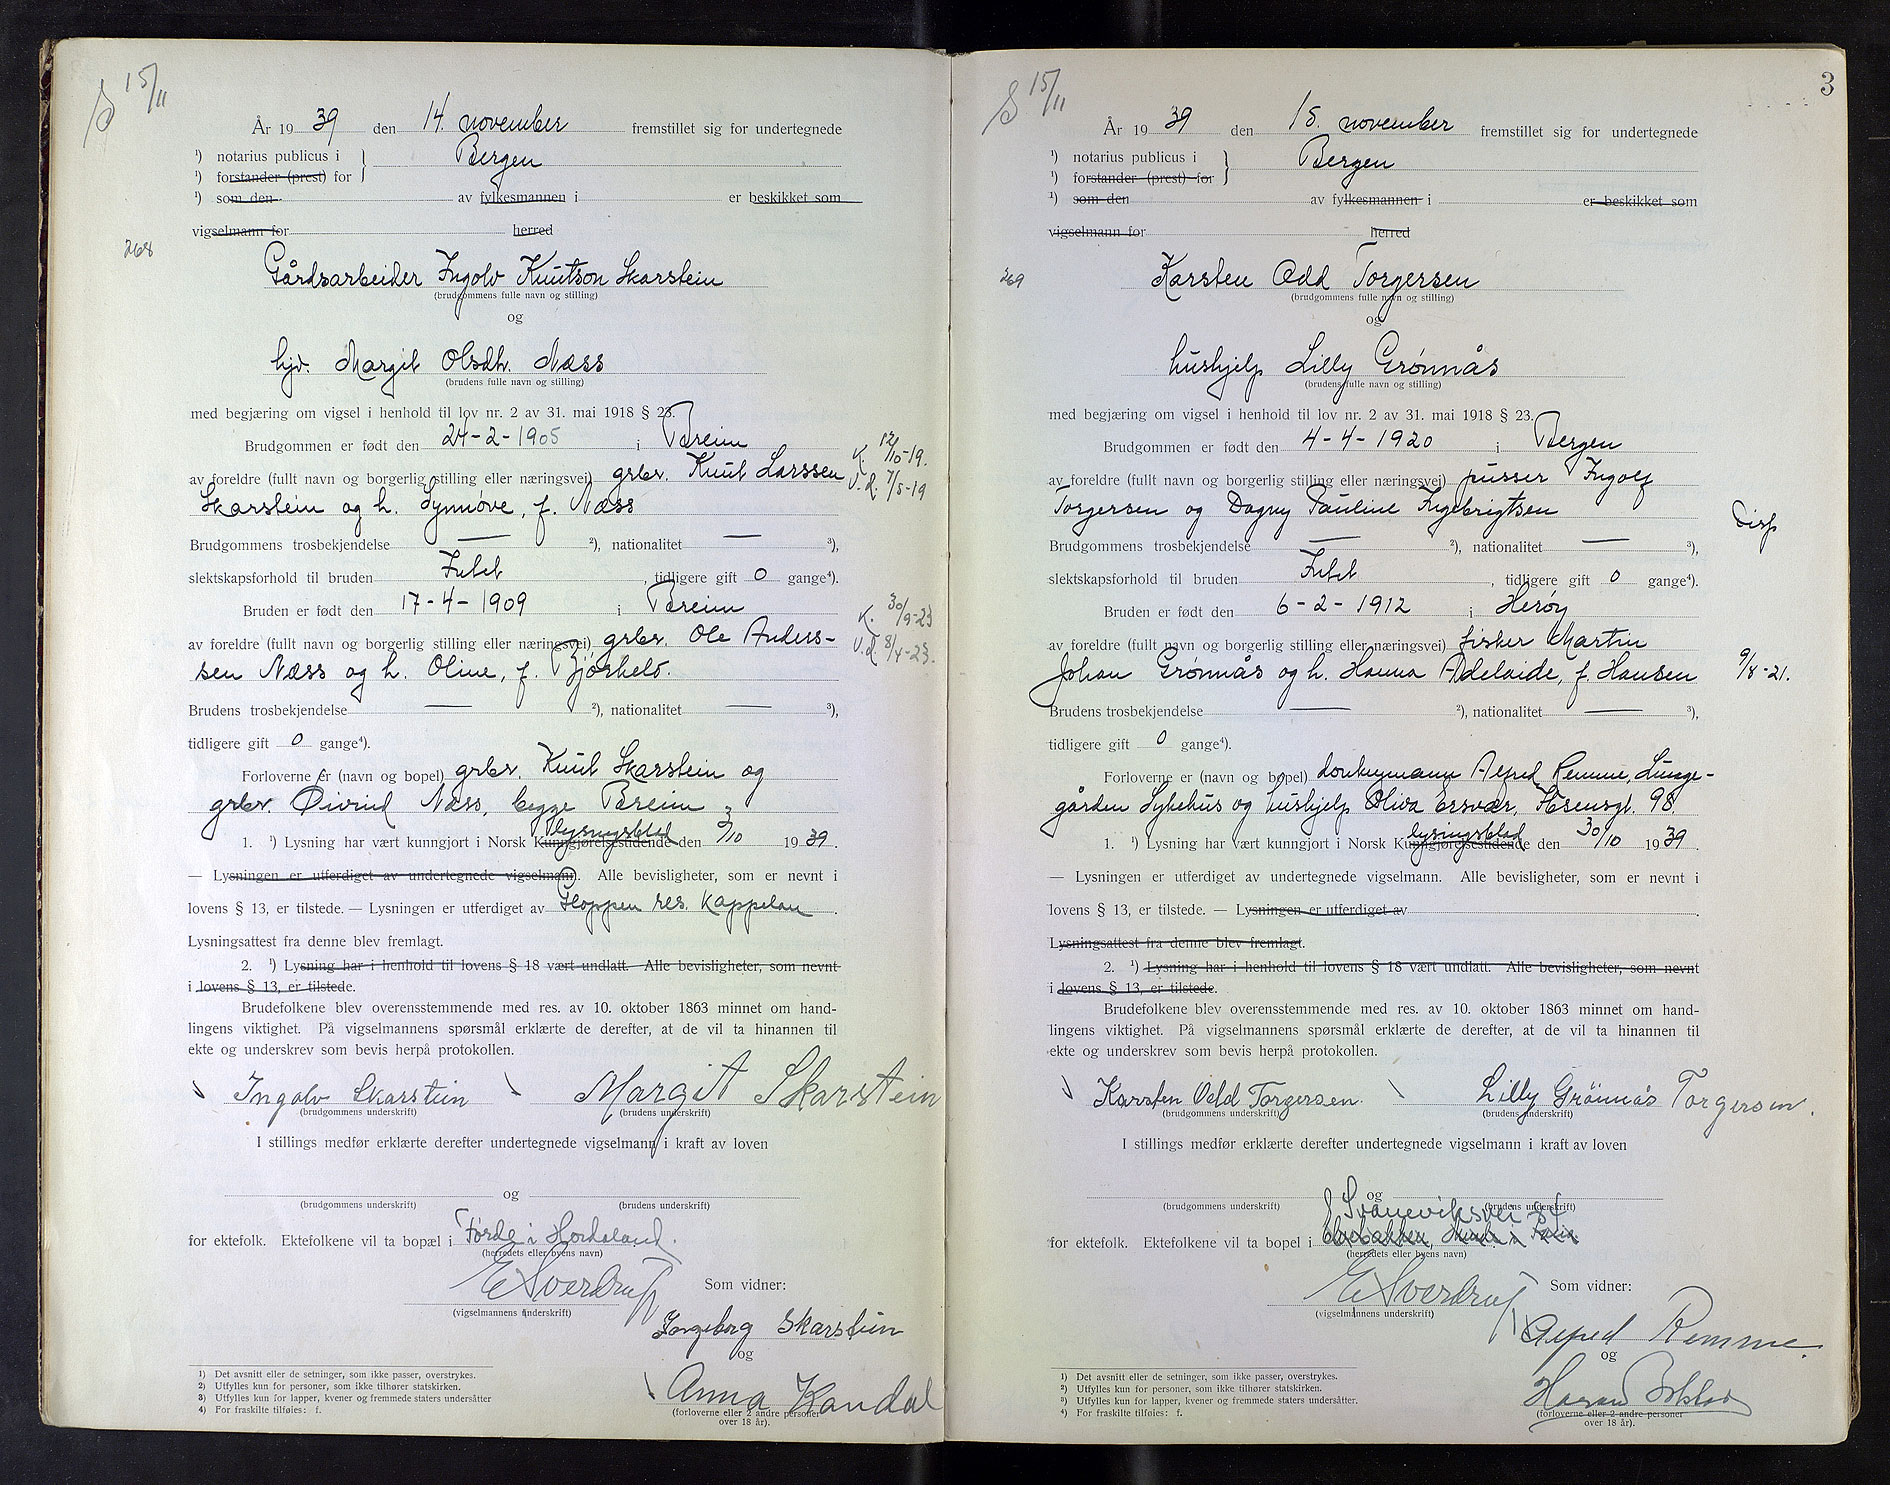 S 15/11
År 1939 den 14. november fremstillet sig for undertegnede
¹) notarius publicus i } Bergen
¹) forstander (prest) for
¹) som den av fylkesmannen i er beskikket som
vigselmann for herred
268
Gårdsarbeider Ingolv Knutson Skarstein
(brudgommens fulle navn og stilling)
og
hjv. Margit Olsdtr. Næss
(brudens fulle navn og stilling)
med begjæring om vigsel i henhold til lov nr. 2 av 31. mai 1918 § 23.
Brudgommen er født den 24-2-1905 i Breim
K. 12/10-19.
av foreldre (fullt navn og borgerlig stilling eller næringsvei) grbr. Knut Larssen
V.d. 7/5-19
Skarstein og h. Synnøve, f. Næss
Brudgommens trosbekjendelse — ²), nationalitet — ³),
slektskapsforhold til bruden Intet, tidligere gift 0 gange⁴).
Bruden er født den 17-4-1909 i Breim
K. 30/9-23
av foreldre (fullt navn og borgerlig stilling eller næringsvei) grbr. Ole Anders-
V.d. 8/4-23.
sen Næss og h. Oline, f. Bjørhelo.
Brudens trosbekjendelse — ²), nationalitet — ³),
tidligere gift 0 gange⁴).
Forloverne er (navn og bopel) grbr. Knut Skarstein og
grbr. Øivind Næss, begge Breim
lysningsblad
1. ¹) Lysning har vært kunngjort i Norsk Kunngjørelsestidende den 3/10 1939.
— Lysningen er utferdiget av undertegnede vigselmann. Alle bevisligheter, som er nevnt i
lovens § 13, er tilstede. — Lysningen er utferdiget av Gloppen res. kappelan.
Lysningsattest fra denne blev fremlagt.
2. ¹) Lysning har i henhold til lovens § 18 vært undlatt. Alle bevisligheter, som nevnt
i lovens § 13, er tilstede.
Brudefolkene blev overensstemmende med res. av 10. oktober 1863 minnet om hand-
lingens viktighet. På vigselmannens spørsmål erklærte de derefter, at de vil ta hinannen til
ekte og underskrev som bevis herpå protokollen.
Ingolv Skarstein Margit Skarstein
(brudgommens underskrift) (brudens underskrift)
I stillings medfør erklærte derefter undertegnede vigselmann i kraft av loven
og
(brudgommens underskrift) (brudens underskrift)
for ektefolk. Ektefolkene vil ta bopæl i Førde i Hordaland.
(herredets eller byens navn)
E Sverdrup Som vidner:
(vigselmannens underskrift)
Ingeborg Skarstein
og
Anna Kandal
(forloverne eller 2 andre personer
over 18 år).
1) Det avsnitt eller de setninger, som ikke passer, overstrykes.
2) Utfylles kun for personer, som ikke tilhører statskirken.
3) Utfylles kun for lapper, kvener og fremmede staters undersåtter
4) For fraskilte tilføies: f.
3
S 15/11
År 1939 den 15. november fremstillet sig for undertegnede
¹) notarius publicus i } Bergen
¹) forstander (prest) for
¹) som den av fylkesmannen i er beskikket som
vigselmann for herred
269
Karsten Odd Torgersen
(brudgommens fulle navn og stilling)
og
hushjelp Lilly Grønnås
(brudens fulle navn og stilling)
med begjæring om vigsel i henhold til lov nr. 2 av 31. mai 1918 § 23.
Brudgommen er født den 4-4-1920 i Bergen
av foreldre (fullt navn og borgerlig stilling eller næringsvei) pusser Ingolf
Torgersen og Dagny Pauline Ingebrigtsen
Disp
Brudgommens trosbekjendelse — ²), nationalitet — ³),
slektskapsforhold til bruden Intet, tidligere gift 0 gange⁴).
Bruden er født den 6-2-1912 i Herøy
av foreldre (fullt navn og borgerlig stilling eller næringsvei) fisker Martin
Johan Grønnås og h. Hanna Adelaide, f. Hansen
9/8-21.
Brudens trosbekjendelse — ²), nationalitet — ³),
tidligere gift 0 gange⁴).
Forloverne er (navn og bopel) donkeymann Alfred Remme, Lunge-
gården Sykehus og hushjelp Oliva Ersvær, Ibsensgt. 98
lysningsblad
1. ¹) Lysning har vært kunngjort i Norsk Kunngjørelsestidende den 30/10 1939.
— Lysningen er utferdiget av undertegnede vigselmann. Alle bevisligheter, som er nevnt i
lovens § 13, er tilstede. — Lysningen er utferdiget av
Lysningsattest fra denne blev fremlagt.
2. ¹) Lysning har i henhold til lovens § 18 vært undlatt. Alle bevisligheter, som nevnt
i lovens § 13, er tilstede.
Brudefolkene blev overensstemmende med res. av 10. oktober 1863 minnet om hand-
lingens viktighet. På vigselmannens spørsmål erklærte de derefter, at de vil ta hinannen til
ekte og underskrev som bevis herpå protokollen.
Karsten Odd Torgersen. Lilly Grönnås Torgersen.
(brudgommens underskrift) (brudens underskrift)
I stillings medfør erklærte derefter undertegnede vigselmann i kraft av loven
og
(brudgommens underskrift) (brudens underskrift)
Svaneviksvei
for ektefolk. Ektefolkene vil ta bopel i
(herredets eller byens navn)
E Sverdrup Som vidner:
(vigselmannens underskrift)
Alfred Remme.
og
(forloverne eller 2 andre personer
over 18 år).
1) Det avsnitt eller de setninger, som ikke passer, overstrykes.
2) Utfylles kun for personer, som ikke tilhører statskirken.
3) Utfylles kun for lapper, kvener og fremmede staters undersåtter.
4) For fraskilte tilføies: f.